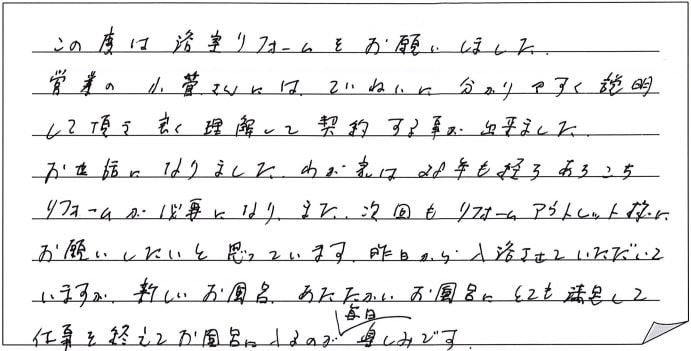 この度は浴室リフォームをお願いしました。
営業の小菅さんには、ていねいに分かりやすく説明
して頂き良く理解して契約する事が出来ました。
お世話になりました。わが家は28年も経ちあちこち
リフォームが必要になり、また、次回もリフォームアウトレット様に
お願いしたいと思っています。昨日から入浴させていただいて
いますが、新しいお風呂、あたたかいお風呂にとても満足して
毎日
仕事を終えてお風呂に入るのが楽しみです。